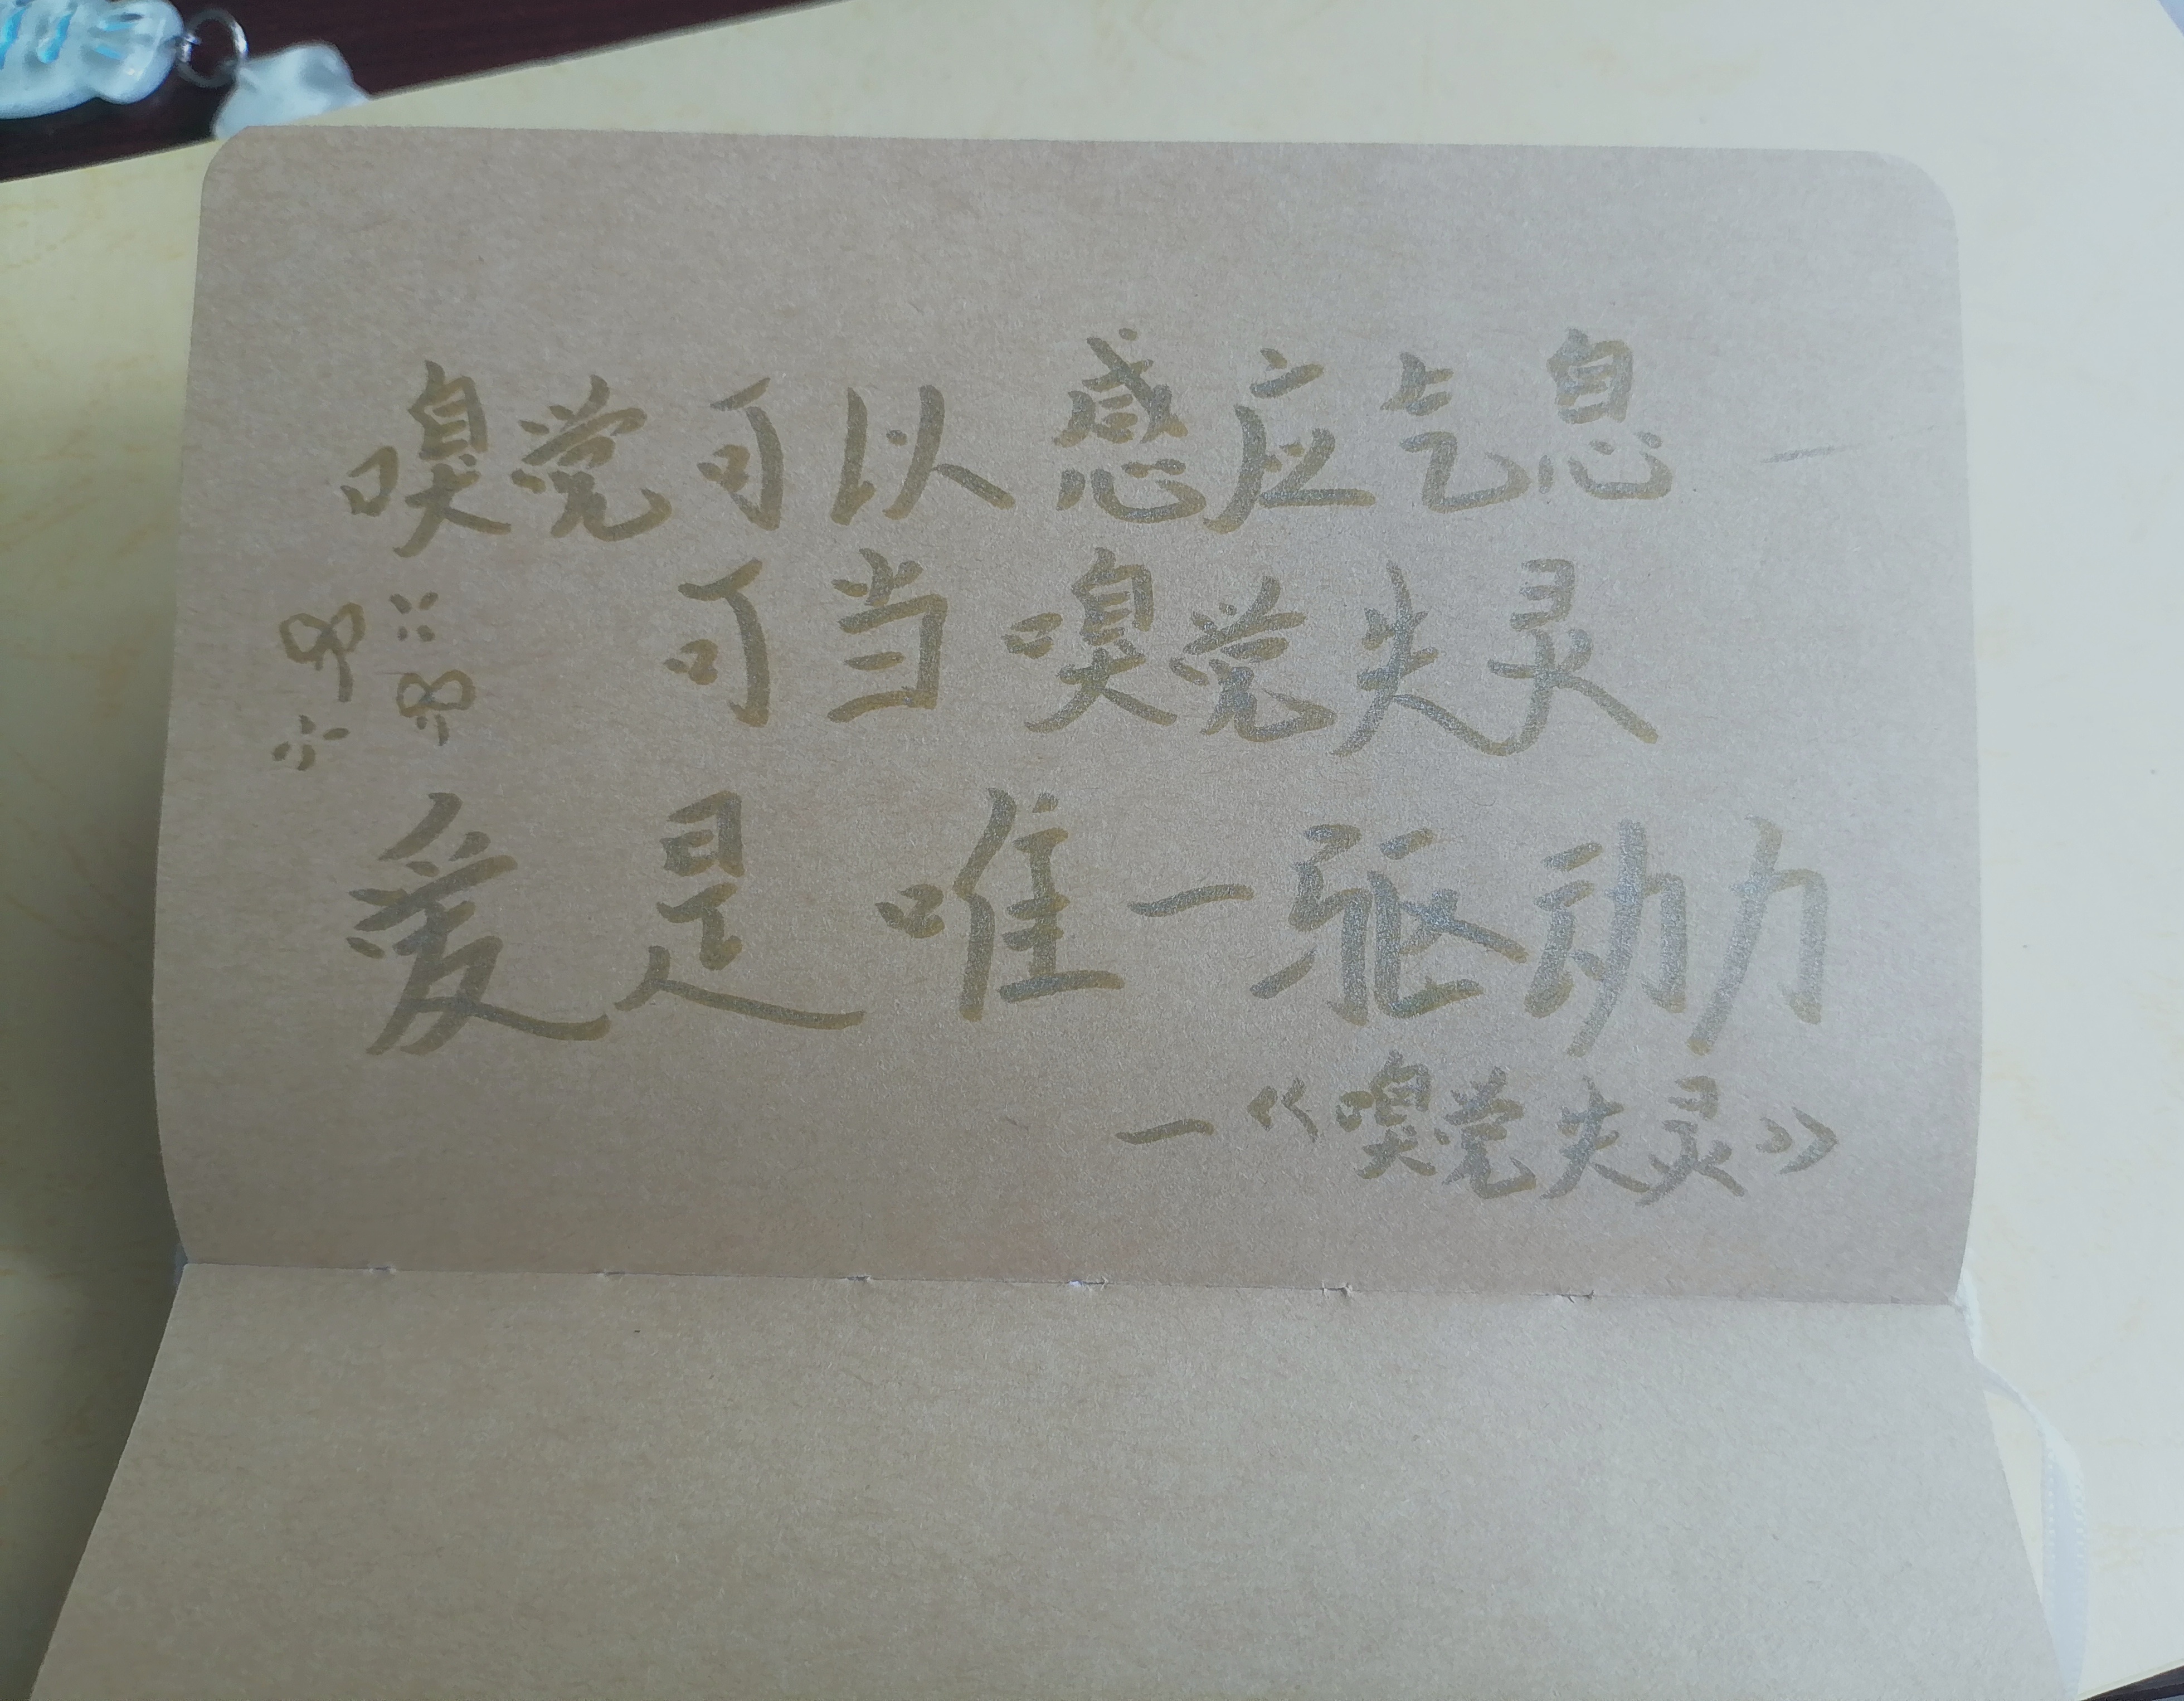 嗅觉可以感应气息
可当嗅觉失灵
爱是唯一驱动力
—《嗅觉失灵》